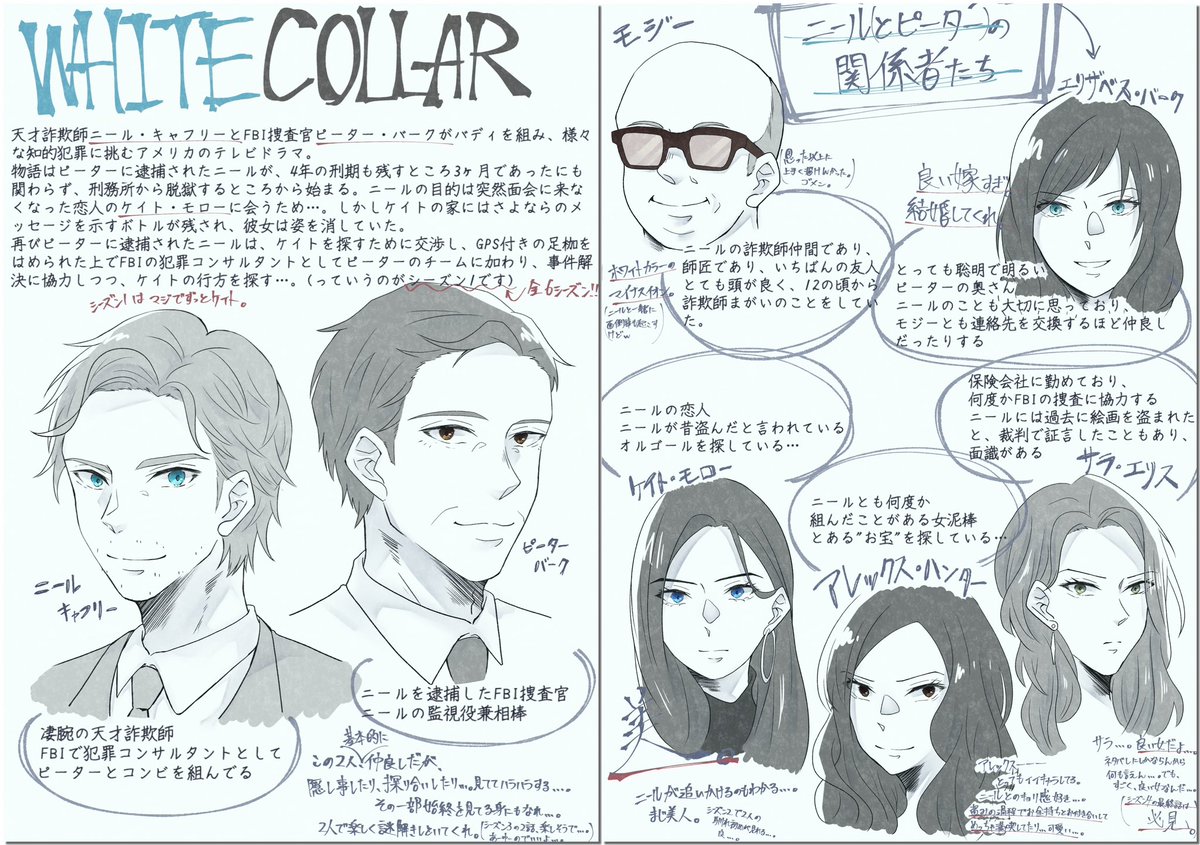 WHITE COLLAR
天才詐欺師ニール・キャフリーとFBI捜査官ピーター・バークがバディを組み、様々
な知的犯罪に挑むアメリカのテレビドラマ。
物語はピーターに逮捕されたニールが、4年の刑期も残すところ3ヶ月であったにも
関わらず、刑務所から脱獄するところから始まる。ニールの目的は突然面会に来な
くなった恋人のケイト・モローに会うため…。しかしケイトの家にはさよならのメ
ッセージを示すボトルが残され、彼女は姿を消していた。
再びピーターに逮捕されたニールは、ケイトを探すために交渉し、GPS付きの足枷を
はめられた上でFBIの犯罪コンサルタントとしてピーターのチームに加わり、事件解
決に協力しつつ、ケイトの行方を探す…。(っていうのがシーズン1です)
全6シーズン!!
シーズン1はマジでずっとケイト。
ニール
キャフリー
ピーター
バーク
凄腕の天才詐欺師
FBIで犯罪コンサルタントとして
ピーターとコンビを組んでる
ニールを逮捕したFBI捜査官
ニールの監視役兼相棒
基本的に
この2人と仲良しだが、
隠し事したり、探り合いしたり…。見ててハラハラする…。
その一部始終を見てる身にもなれ…。
2人で楽しく謎解きしといてくれ。
ニール(とピーター)の
関係者たち
モジー
思った以上に
上手く描けんかった。
ゴメン。
ニールの詐欺師仲間であり、
師匠であり、いちばんの友人
とても頭が良く、12の頃から
詐欺師まがいのことをしてい
た。
ホワイトカラーの
マイナスイオン。
エリザベス・バーク
良い嫁すぎ
結婚してくれ
とっても聡明で明るい
ピーターの奥さん
ニールのことも大切に思っており、
モジーとも連絡先を交換するほど仲良し
だったりする
ニールの恋人
ニールが昔盗んだと言われている
オルゴールを探している…
ケイト・モロー
美
ニールが追いかけるのもわかる…。
まじ美人。
ニールとも何度か
組んだことがある女泥棒
とある"お宝"を探している…
アレックス・ハンター
アレックス…
とってもイイキャラしてる。
保険会社に勤めており、
何度かFBIの捜査に協力する
ニールには過去に絵画を盗まれた
と、裁判で証言したこともあり、
面識がある
サラ・エリス
サラ…。良い女だよ…。
ネタバレしたしかならんから
何も言えん…。でも、
すごく、良い女なんだ…。
必見。